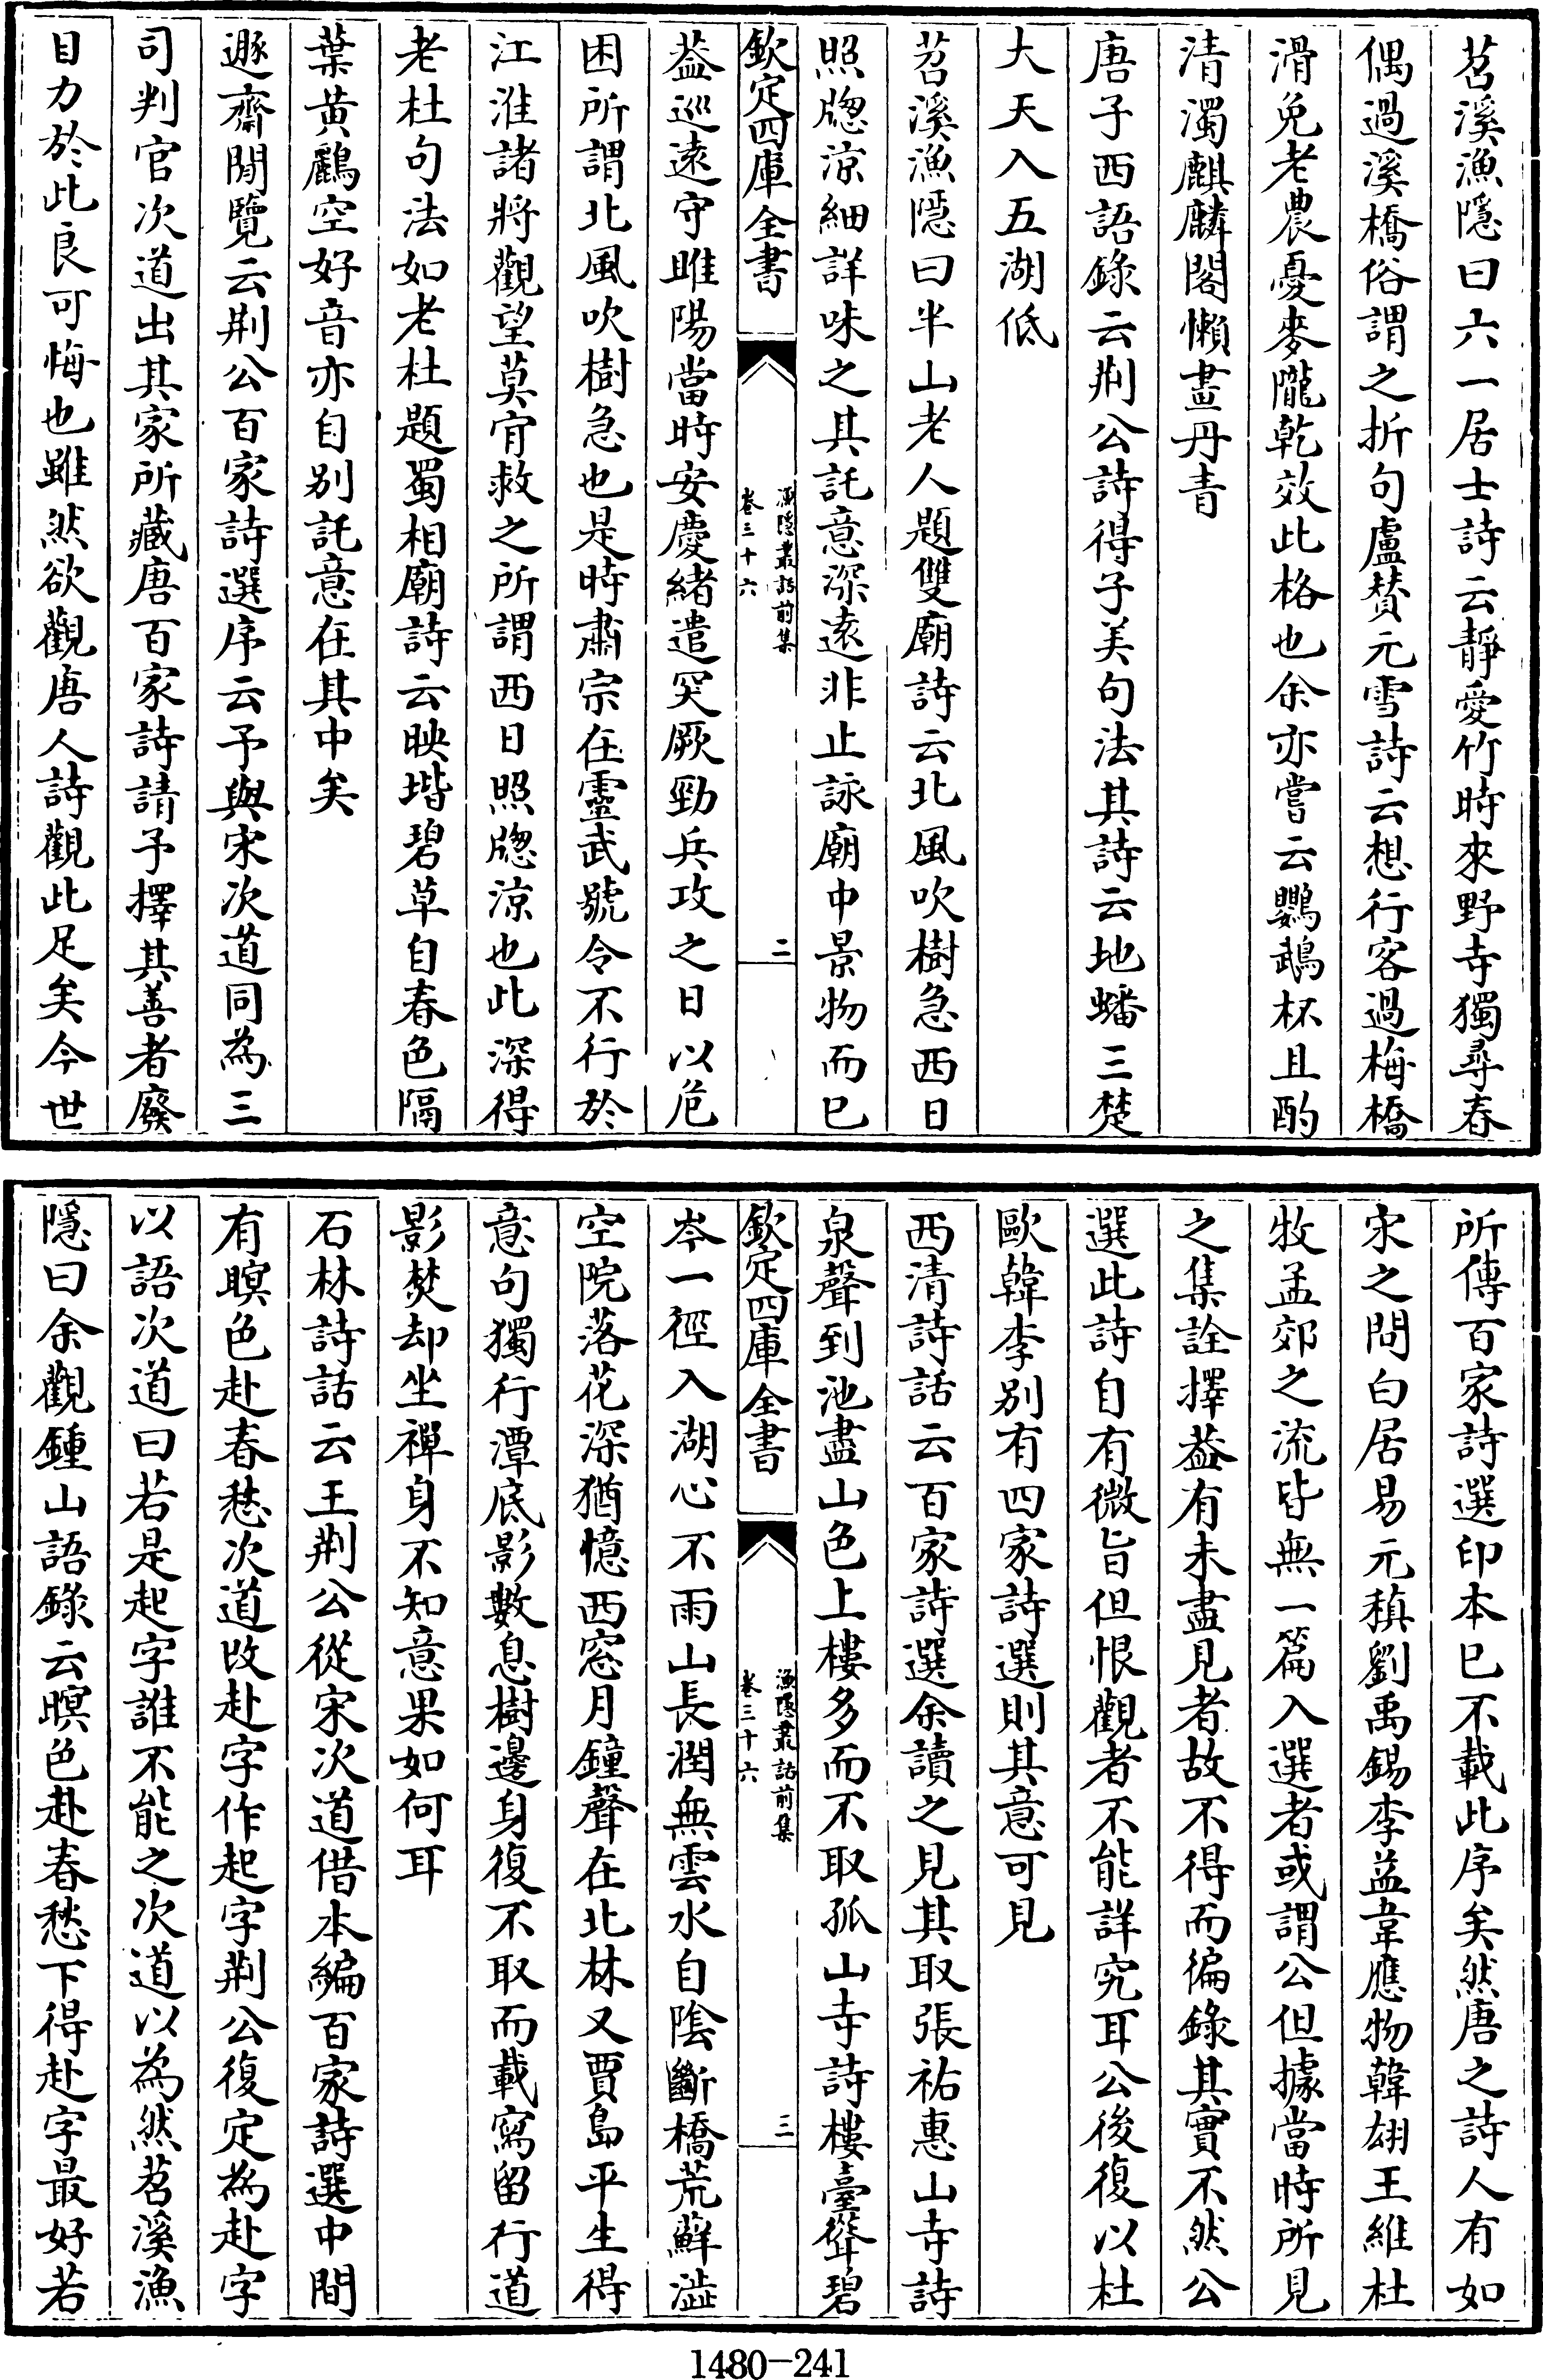 苕溪漁隱曰六一居士詩云靜愛竹時來野寺獨尋春
偶過溪橋俗謂之折句盧贊元雪詩云想行客過梅橋
滑免老農憂麥隴乾效此格也余亦嘗云鸚鵡杯且酌
清濁麒麟閣懶畫丹青
唐子西語錄云荆公詩得子美句法其詩云地蟠三楚
大天入五湖低
苕溪漁隱曰半山老人題雙廟詩云北風吹樹急西日
照牕涼細詳味之其託意深遠非止詠廟中景物而已
欽定四庫全書
漁隱叢話前集
卷三十六
二
葢巡遠守睢陽當時安慶緒遣突厥勁兵攻之日以危
困所謂北風吹樹急也是時肅宗在靈武號令不行於
江淮諸將觀望莫肎救之所謂西日照牕涼也此深得
老杜句法如老杜題蜀相廟詩云映堦碧草自春色隔
葉黄鸝空好音亦自别託意在其中矣
遯齋閒覽云荆公百家詩選序云予與宋次道同為三
司判官次道出其家所藏唐百家詩請予擇其善者廢
目力於此良可悔也雖然欲觀唐人詩觀此足矣今世
所傳百家詩選印本已不載此序矣然唐之詩人有如
宋之問白居易元稹劉禹錫李益韋應物韓翃王維杜
牧孟郊之流皆無一篇入選者或謂公但據當時所見
之集詮擇葢有未盡見者故不得而徧錄其實不然公
選此詩自有微旨但恨觀者不能詳究耳公後復以杜
歐韓李别有四家詩選則其意可見
西清詩話云百家詩選余讀之見其取張祐惠山寺詩
泉聲到池盡山色上樓多而不取孤山寺詩樓臺聳碧
欽定四庫全書
漁隱叢話前集
卷三十六
三
岑一徑入湖心不雨山長潤無雲水自陰斷橋荒蘚澁
空院落花深猶憶西窓月鐘聲在北林又賈島平生得
意句獨行潭底影數息樹邊身復不取而載寫留行道
影焚却坐禪身不知意果如何耳
石林詩話云王荆公從宋次道借本編百家詩選中間
有暝色赴春愁次道改赴字作起字荆公復定為赴字
以語次道曰若是起字誰不能之次道以為然苕溪漁
隱曰余觀鍾山語錄云暝色赴春愁下得赴字最好若
1480-241